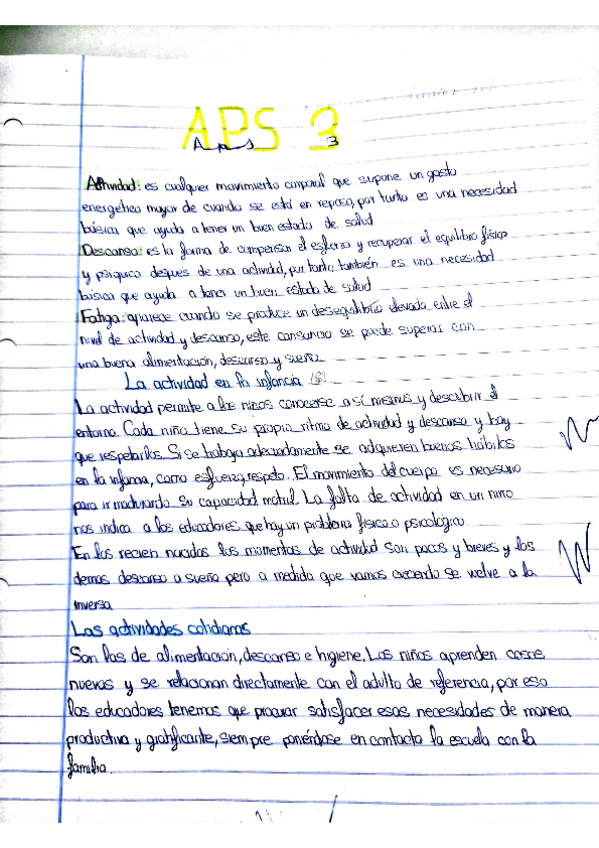 APS 3
Aps 3
Actividad: es cualquier movimiento corporal que supone un gasto
energético mayor de cuando se está en reposo, por tanto es una necesidad
básica que ayuda a tener un buen estado de salud
Descanso: es la forma de compensar el esfuerzo y recuperar el equilibrio físico
y psíquico después de una actividad, por tanto también es una necesidad
básica que ayuda a tener un buen estado de salud
Fatiga: aparece cuando se produce un desequilibrio elevado entre el
nivel de actividad y descanso, este cansancio se puede superar con
una buena alimentación, descanso y sueño
La actividad en la infancia
La actividad permite a los niños conocerse a sí mismos y descubrir el
entorno. Cada niño tiene su propio ritmo de actividad y descanso y hay
que respetarlos. Si se trabaja adecuadamente se adquieren buenos hábitos
en la infancia, como esfuerzo, respeto. El movimiento del cuerpo es necesario
para ir madurando su capacidad motriz. La falta de actividad en un niño
nos indica a los educadores que hay un problema físico o psicológico
En los recien nacidos los momentos de actividad son pocos y breves y los
demas descanso o sueño pero a medida que vamos creciendo se vuelve a la
inversa
Las actividades cotidianas
Son las de alimentación, descanso e higiene. Los niños aprenden cosas
nuevas y se relacionan directamente con el adulto de referencia, por eso
los educadores tenemos que procurar satisfacer esas necesidades de manera
productiva y gratificante, siempre poniéndose en contacto la escuela con la
familia.